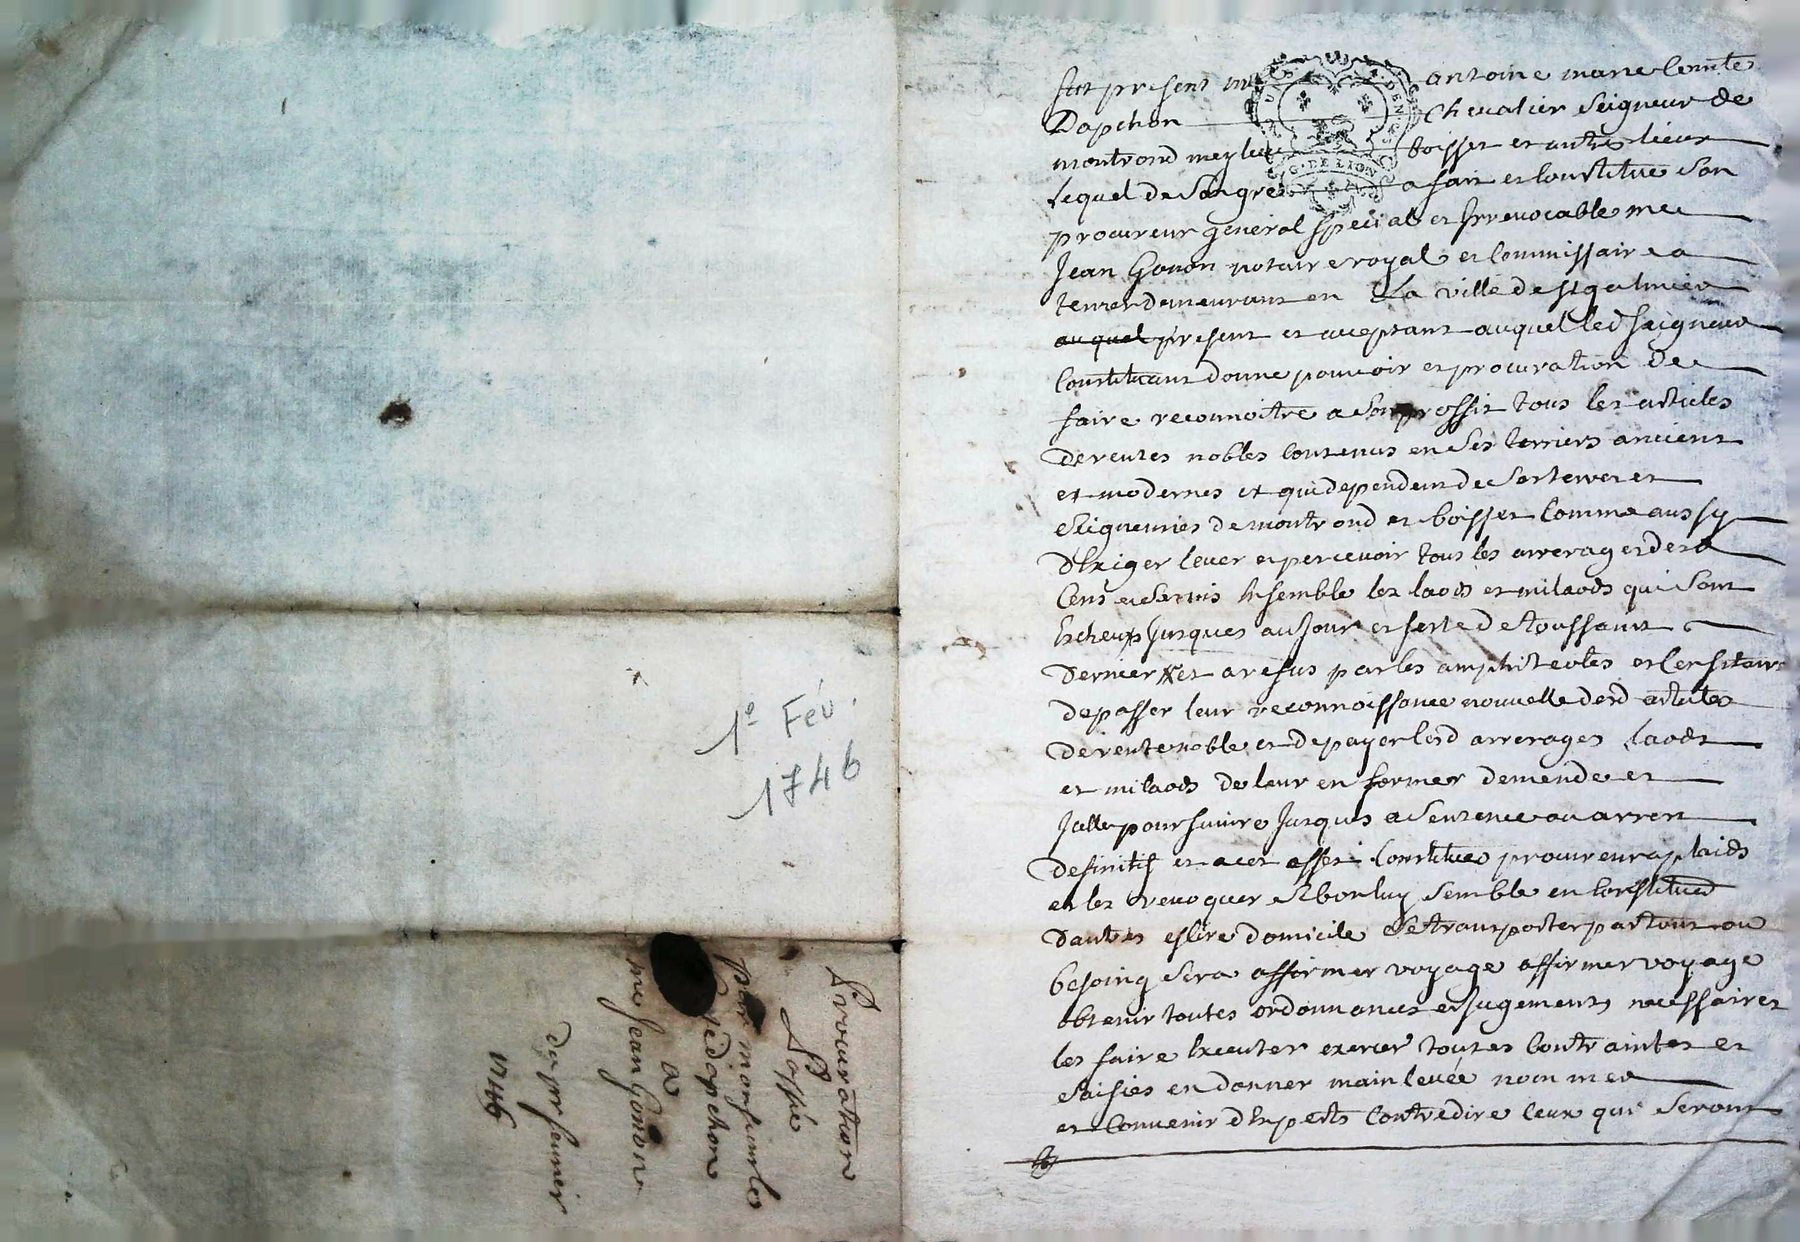 1º Fév.
1746
Procuration
Passée
par monsieur le
Cte dapchon
a
me Jean Gonon
du pr feurier
1746
fut present
antoine marie Comte
Dapchon
Chevalier Seigneur de
montrond meylieu
boisset et autres lieux
Lequel de Son gre
a fait et Constitue Son
procureur general special et Irrevocable me
Jean Gonon notaire royal et Commissaire a
terrier demeurant en La ville de st galmier
auquel present et acceptant auquel led seigneur
Constituant donne pouvoir et procuration de
faire reconnoitre a Son proffit tous les articles
de rentes nobles Contenus en Ses terriers anciens
et modernes et qui dependent de Ses terres et
Seigneuries de montrond et boisset Comme aussy
dExiger lever et percevoir tous les arrerages desd
Cens et Servis Ensemble les laods et milaods qui Sont
Escheup Jusques au Jour et feste de toussaint
dernier et a refus par les amphiteotes et Censitaires
de passer leur reconnoissance nouvelle desd articles
de rente noble et de payer lesd arrerages laods
et milaods de leur en former demende et
Jcelle poursuivre Jusques a Sentence ou arrest
definitif et a cet effet Constituer procureur a plaids
et les revoquer Si bon luy Semble en Constituer
dautres eslire domicile Se transporter partout ou
besoing Sera affirmer voyage affirmer voyage
obtenir toutes ordonnances et Jugements necessaires
les faire Executer exercer toutes Contraintes et
Saisies en donner main levée nommer
et Convenir dExperts Contredire Ceux qui Seront
G. DE LION